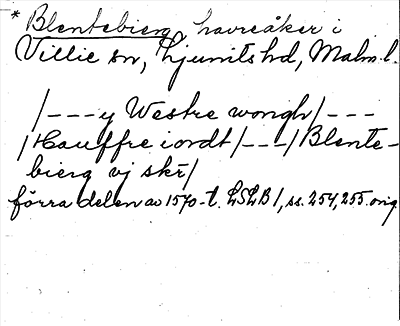 * Blentebierg, havreåker i
Villie sn, Ljunits hd, Malm.l.
/---y Westre wongh/---
/Hauffre iordt/---/Blente-
bierg vj skr/
förra delen av 1570-t. LSLB1, ss. 254, 255. orig.